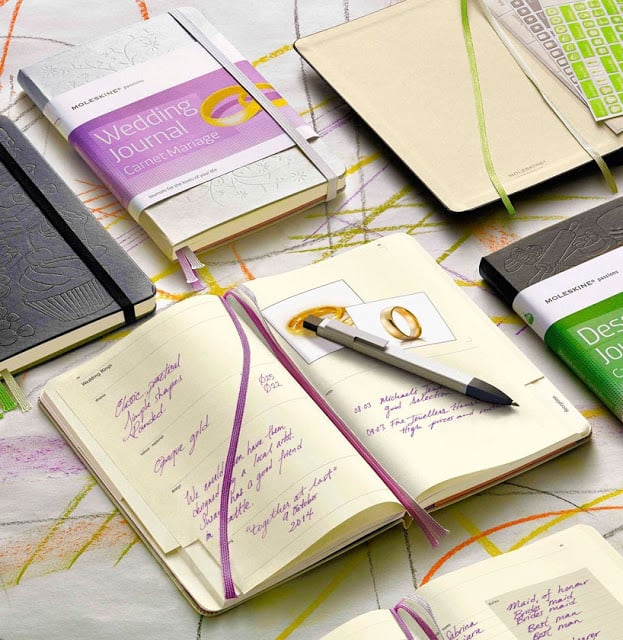 MOLESKINE® passions
Wedding
Journal
Carnet Mariage
Journals for the loves of your life
MOLESKINE®
MOLESKINE® passions
Des
Jou
Carne
Wedding Rings
Classic, practical
Simple shapes
Rounded
Ø25
Ø22
Opaque gold
We could even have them
designed by a local artist.
has a good friend
in Seattle.
"together at last"
9 October
2014
08.03 Michaels
good selection
09.03 The Jewellers
High prices and
Maid of honour
Brides maid
Brides maid
Best man
man
Sabrina